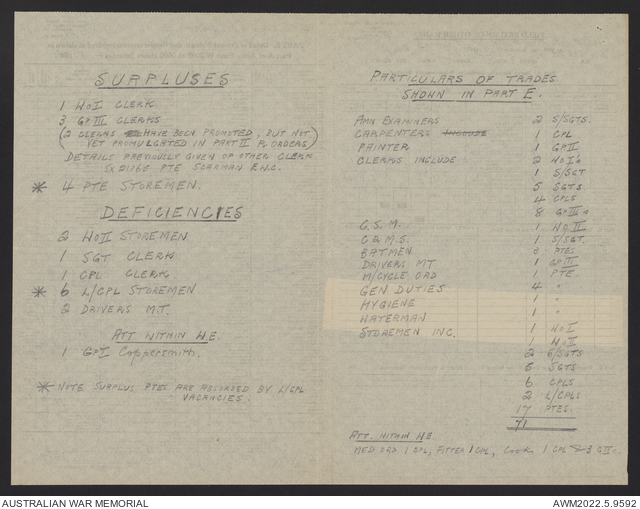 SURPLUSES
1 WOI CLERK
3 GPIII CLERKS
(2 CLERKS HAVE BEEN PROMOTED, BUT NOT
YET PROMULGATED IN PART II R. ORDERS)
DETAILS PREVIOUSLY GIVEN OF OTHER CLERK
PTE SCARMAN
* 4 PTE STOREMEN.
DEFICIENCIES
2 WOII STOREMEN
1 SGT CLERK
1 CPL CLERK
* 6 L/CPL STOREMEN
2 DRIVERS M.T.
ATT WITHIN W.E.
1 GPI Coppersmith.
* NOTE SURPLUS PTES ARE ABSORBED BY L/CPL
VACANCIES.
PARTICULARS OF TRADES
SHOWN IN PART E.
AMN EXAMINERS 2 S/SGTS.
CARPENTERS INCLUDE 1 CPL
PAINTER 1 GPII
CLERKS INCLUDE 2 WOI's
1 S/SGT
5 SGTS
4 CPLS
8 GPIIIs
C.S.M. 1 WOII
C.Q.M.S. 1 S/SGT.
BATMEN PTES
DRIVERS MT 1 GPIII
M/CYCLE ORD 1 PTE
GEN DUTIES 4 "
HYGIENE 1 "
WATERMAN 1 "
STOREMEN INC. 1 WOI
1 WOII
2 S/SGTS
6 SGTS
6 CPLS
2 L/CPLS
17 PTES.
71
ATT. WITHIN W.E.
MED ORD 1 CPL, FITTER 1 CPL, Cooks 1 CPL 3 GII
AUSTRALIAN WAR MEMORIAL
AWM2022.5.9592